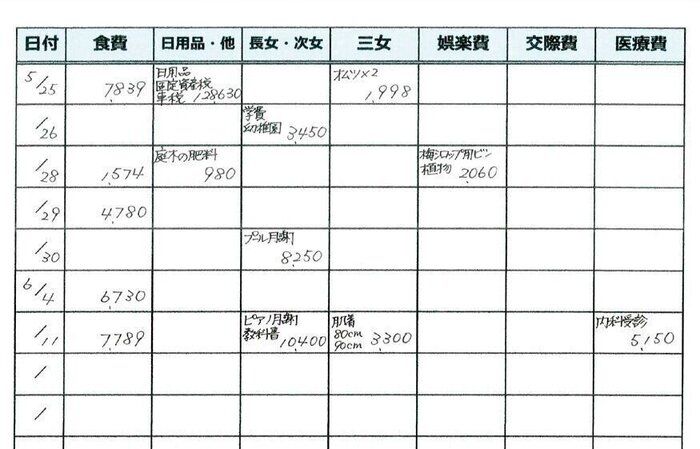 日付 食費 日用品・他 長女・次女 三女 娯楽費 交際費 医療費
5/25 7,839 日用品 固定資産税 車税 128,630 オムツ×2 1,998
/26 学費 幼稚園 3,450
/28 1,574 庭木の肥料 980 梅シロップ用ビン 植物 2,060
/29 4,780
/30 プール月謝 8,250
6/4 6,730
/11 7,789 ピアノ月謝 教科書 10,400 肌着 80cm 90cm 3,300 内科受診 5,150
/
/